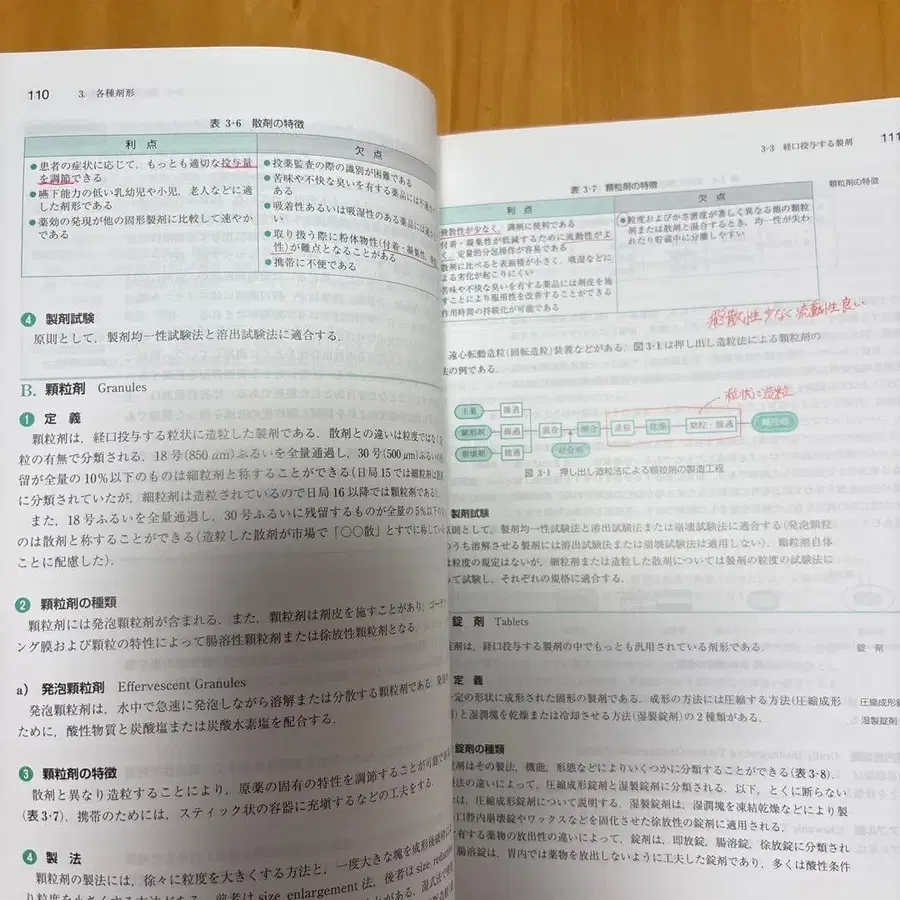 110
3. 各種剤形
表 3・6 散剤の特徴
利 点
欠 点
●患者の症状に応じて，もっとも適切な投与量
を調節できる
●嚥下能力の低い乳幼児や小児，老人などに適
した剤形である
●薬効の発現が他の固形製剤に比較して速やか
である
●投薬監査の際の識別が困難である
●苦味や不快な臭いを有する薬品には不適
である
●吸着性あるいは吸湿性のある薬品には適さ
い
●取り扱う際に粉体物性(付着・凝集性，飛散
性)が難点となることがある
●携帯に不便である
4 製剤試験
原則として，製剤均一性試験法と溶出試験法に適合する．
B. 顆粒剤 Granules
1 定 義
顆粒剤は，経口投与する粒状に造粒した製剤である．散剤との違いは粒度ではなく
粒の有無で分類される．18号(850 μm)ふるいを全量通過し，30号(500 μm)ふるいの
留が全量の10％以下のものは細粒剤と称することができる(日局15では細粒剤は
に分類されていたが，細粒剤は造粒されているので日局16以降では顆粒剤である)．
また，18号ふるいを全量通過し，30号ふるいに残留するものが全量の5％以下の
のは散剤と称することができる(造粒した散剤が市場で「○○散」とすでに称して
ことに配慮した)．
2 顆粒剤の種類
顆粒剤には発泡顆粒剤が含まれる．また，顆粒剤は剤皮を施すことがあり，コーテ
ング膜および顆粒の特性によって腸溶性顆粒剤または徐放性顆粒剤となる．
a) 発泡顆粒剤 Effervescent Granules
発泡顆粒剤は，水中で急速に発泡しながら溶解または分散する顆粒剤である．発泡
ために，酸性物質と炭酸塩または炭酸水素塩を配合する．
3 顆粒剤の特徴
散剤と異なり造粒することにより，原薬の固有の特性を調節することが可能
(表3・7)．携帯のためには，スティック状の容器に充填するなどの工夫をする．
4 製 法
顆粒剤の製法には，徐々に粒度を大きくする方法と，一度大きな塊を成形後破砕
り粒度を小さくする方法がある．前者はsize enlargement法，後者はsize reduction
3-3 経口投与する製剤
111
表 3・7 顆粒剤の特徴
顆粒剤の特徴
利 点
欠 点
飛散性が少なく，調剤に便利である
付着・凝集性が低減するために流動性がよ
く，定量的分包操作が容易である
散剤に比べると表面積が小さく，吸湿などに
よる劣化が起こりにくい
苦味や不快な臭いを有する薬品には剤皮を施
すことにより服用性を改善することができる
作用時間の持続化が可能である
●粒度およびかさ密度が著しく異なる他の顆粒
剤または散剤と混合するとき，均一性が失わ
れたり貯蔵中に分離しやすい
飛散性少なく流動性良い
遠心転動造粒(回転造粒)装置などがある．図3・1は押し出し造粒法による顆粒剤の
法の例である．
粒状に造粒
主薬
篩過
賦形剤
篩過
混合
練合
造粒
乾燥
整粒・篩過
顆粒剤
崩壊剤
篩過
結合剤
図 3・1 押し出し造粒法による顆粒剤の製造工程
製剤試験
原則として，製剤均一性試験法と溶出試験法または崩壊試験法に適合する(発泡顆粒
のうち溶解させる製剤には溶出試験法または崩壊試験法は適用しない)．顆粒剤自体
は粒度の規定はないが，細粒剤または造粒した散剤については製剤の粒度の試験法に
って試験し，それぞれの規格に適合する．
錠 剤 Tablets
錠 剤
錠剤は，経口投与する製剤の中でもっとも汎用されている剤形である．
定 義
一定の形状に成形された固形の製剤である．成形の方法には圧縮する方法(圧縮成形
)と湿潤塊を乾燥または冷却させる方法(湿製錠剤)の2種類がある．
圧縮成形
湿製錠剤
錠剤の種類
錠剤はその製法，機能，形態などによりいくつかに分類することができる(表3・8)．
法の違いによって，圧縮成形錠剤と湿製錠剤に分類される．以下，とくに断らない
は，圧縮成形錠剤について説明する．湿製錠剤は，湿潤塊を凍結乾燥などにより製
口腔内崩壊錠やワックスなどを固化させた徐放性の錠剤に適用される．
有する薬物の放出性の違いによって，錠剤は，即放錠，腸溶錠，徐放錠に分類され
腸溶錠は，胃内では薬物を放出しないように工夫した錠剤であり，多くは酸性条件